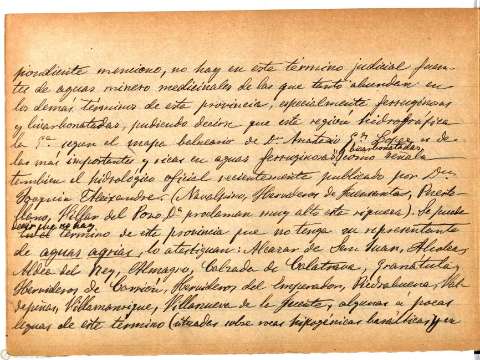 pondiente menciono, no hay en este término judicial fuen-
tes de aguas minero medicinales de las que tanto abundan en
los demas términos de esta provincia, especialmente ferruginosas
y bicarbonatadas, pudiendo decirse que esta región hidrografica
la 5ª segun el mapa balneario de D. Anastasio Gª Lopez es de
las mas importantes y ricas en aguas ferruginosas y bicarbonatadas como señala
tambien el hidrológico oficial recientemente publicado por Don
Joaquin Eleizeandre. (Navalpino, Hervideros de Fuensanta, Puerto-
llano, Villar del Pozo &ª proclaman muy alto esta riqueza). Se puede
decir que no hay
un el término de esta provincia que no tenga su representante
de aguas agrias, lo atestiguan: Alcazar de San Juan, Alcolea,
Aldea del Rey, Almagro, Calzada de Calatrava, Granátula,
Hervideros de Carrión, Hervideros del Emperador, Piedrabuena, Val-
depeñas, Villamanrique, Villanueva de la Fuente, algunas a pocas
leguas de este término (situadas sobre rocas hipogénicas basálticas) y en